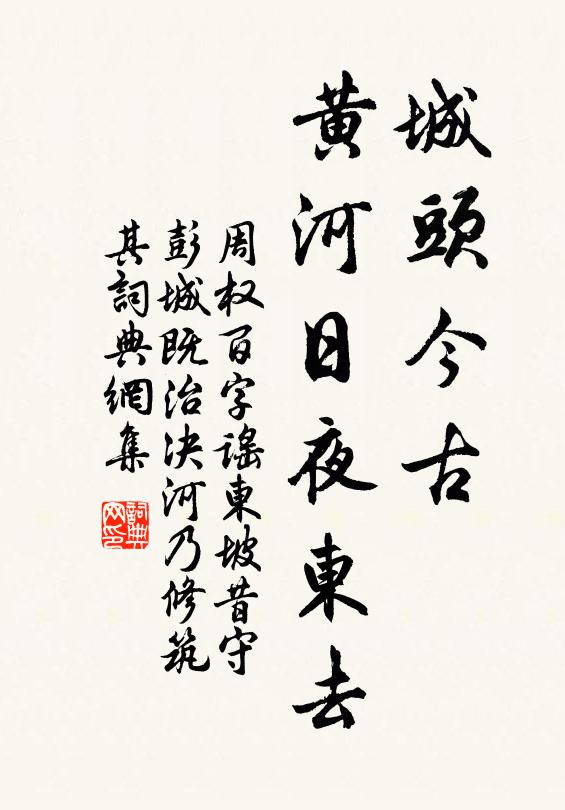 城頭今古
黄河日夜東去
周权百字謠東坡昔守
彭城既治决河乃修筑
其詞典網集
詞典网印